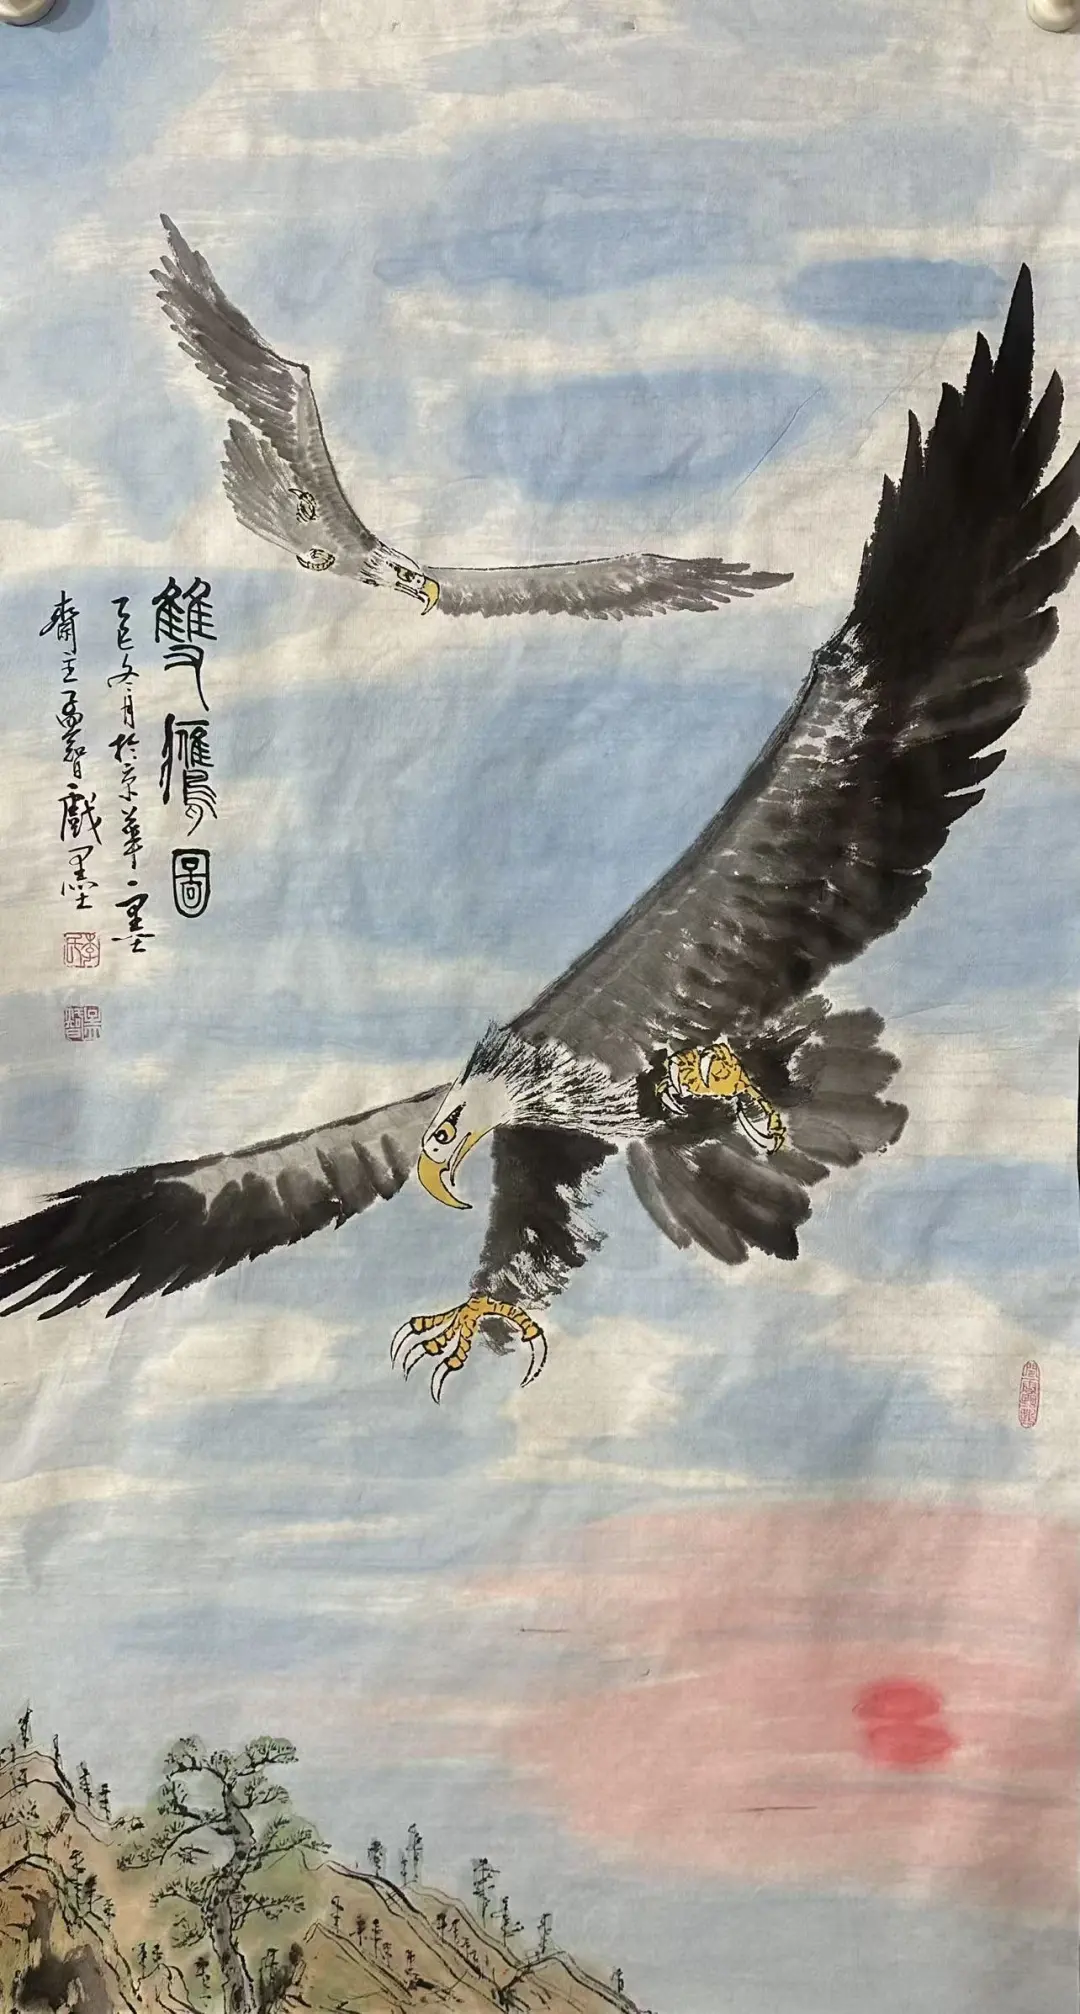 雙鷹圖
乙巳冬月於京華一墨
齋主孟智戲墨